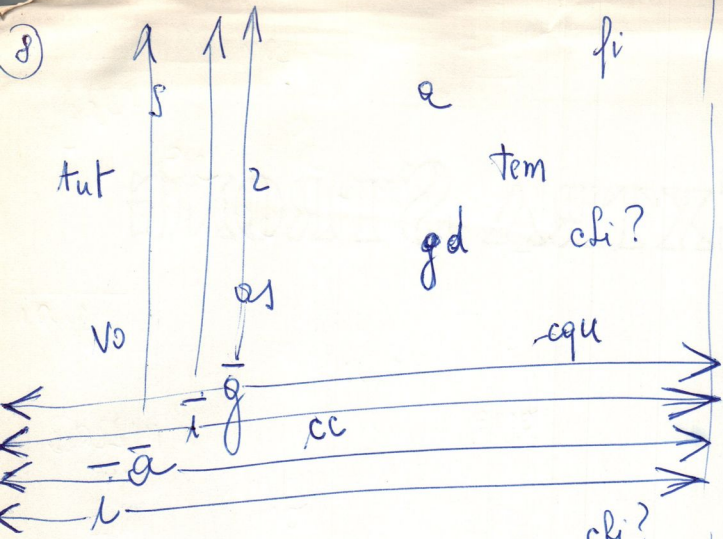 8
fi
s
a
tut
2
tem
gd
chi?
as
vo
cqu
g
i
cc
a
i
chi?